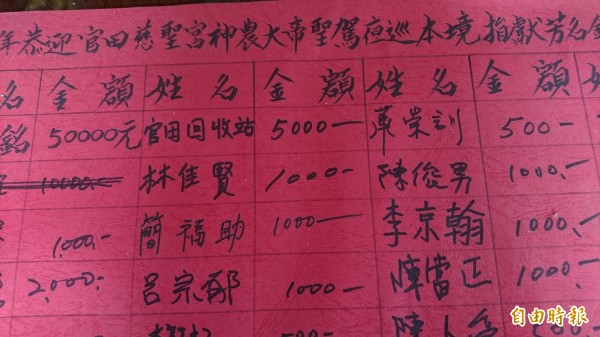 年恭迎官田慈聖宮神農大帝聖駕夜巡本境捐獻芳名
名 金額 姓名 金額 姓名 金額
銘 50000元 官田回收站 5000- 500-
10000.- 林佳賢 1000- 陳俊男 1000.-
1,000.- 簡福助 1000- 李京翰 1000.-
2,000.- 呂宗郁 1000- 陳當正 1000.-
500-
自由時報